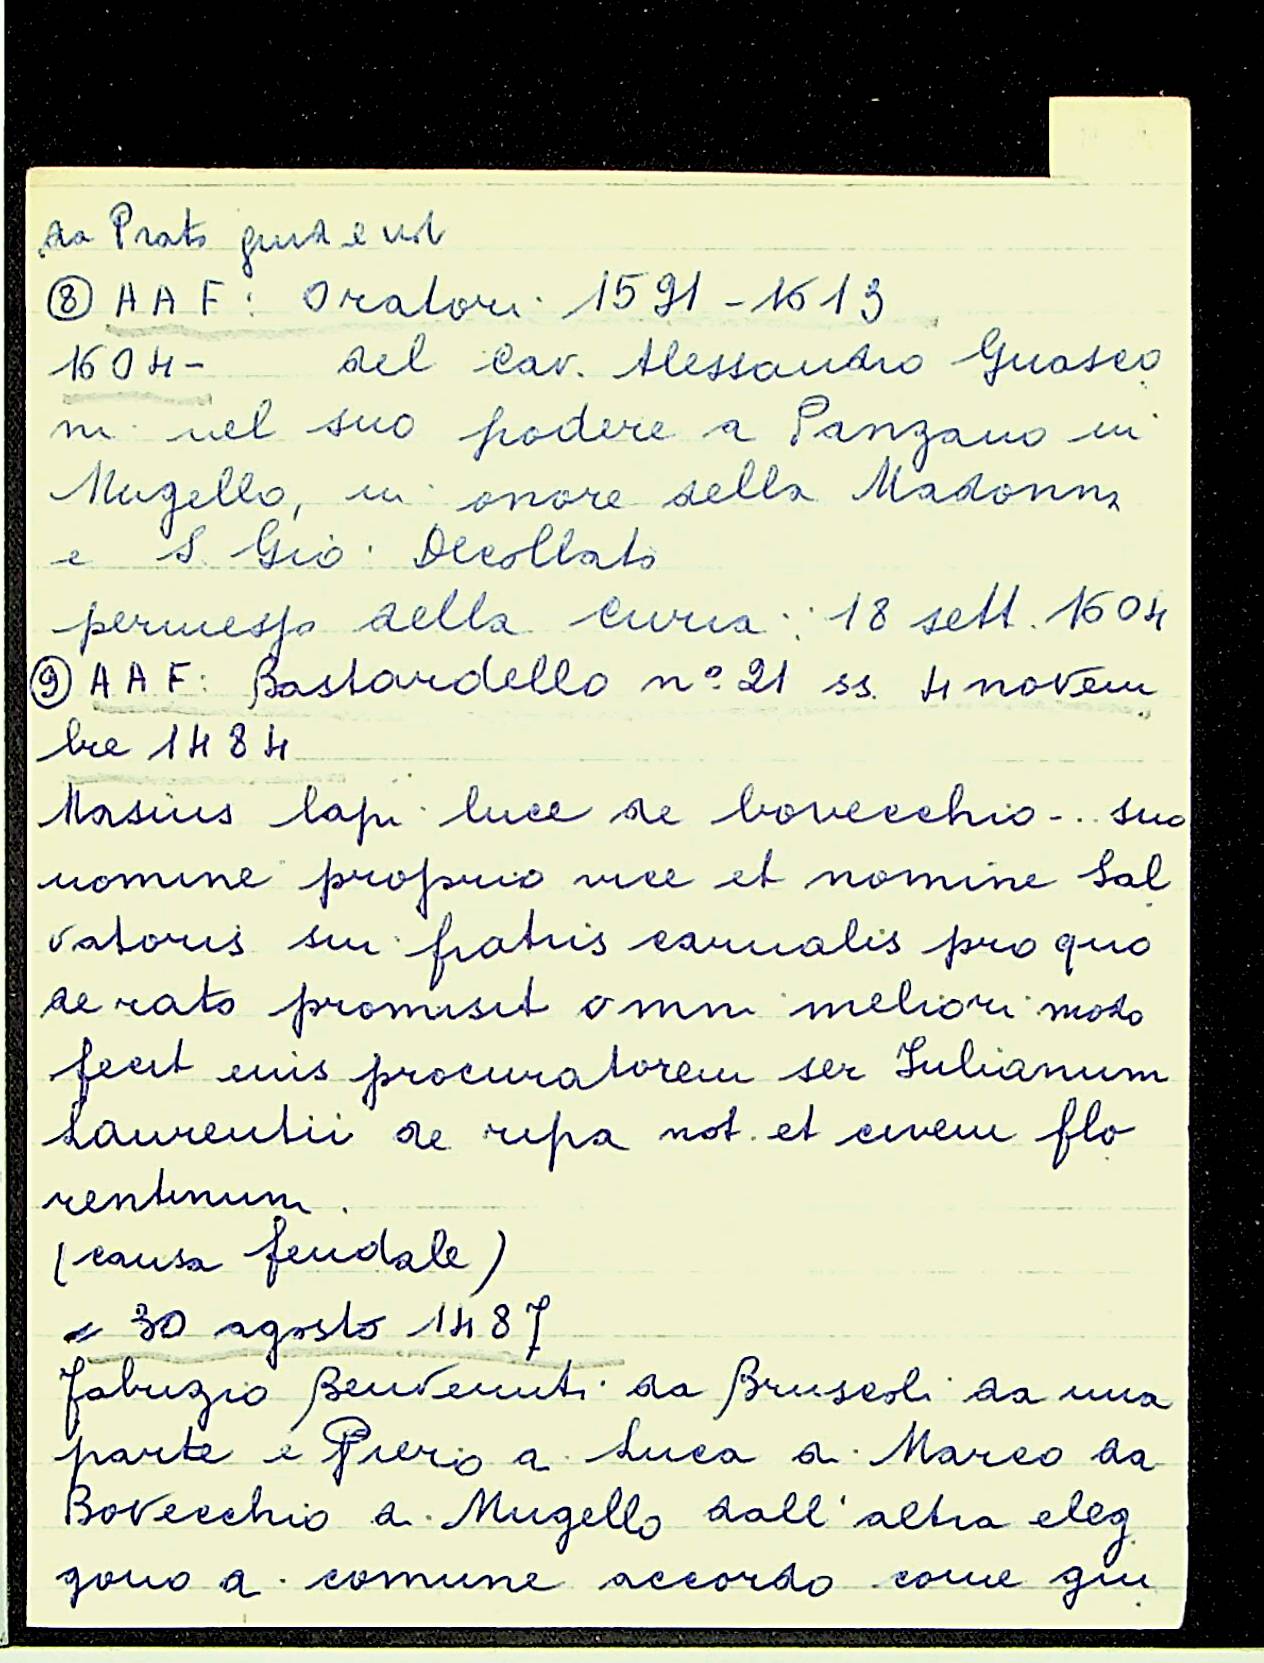 da Prato giud e vol
⑧ A A F: Oratori 1591-1613
1604- del Cav. Alessandro Guasco
ni nel suo podere a Panzano in
Mugello, in onore della Madonna
e S. Giò: Decollato
permesso della Curia: 18 sett. 1604
⑨ A A F: Bastardello n° 21 ss. 4 novem
bre 1484
Masius lapi luce de bovecchio-.. suo
nomine proprio vice et nomine Sal
vatoris sui fratris carnalis pro quo
de rato promisit omni meliori modo
fecit eius procuratorem ser Iulianum
Laurentii de ripa not. et civem flo
rentinum.
(causa feudale)
= 30 agosto 1487
Fabrizio Benvenuti da Bruscoli da una
parte e Piero di Luca di Marco da
Bovecchio di Mugello dall'altra eleg
gono di comune accordo come giu